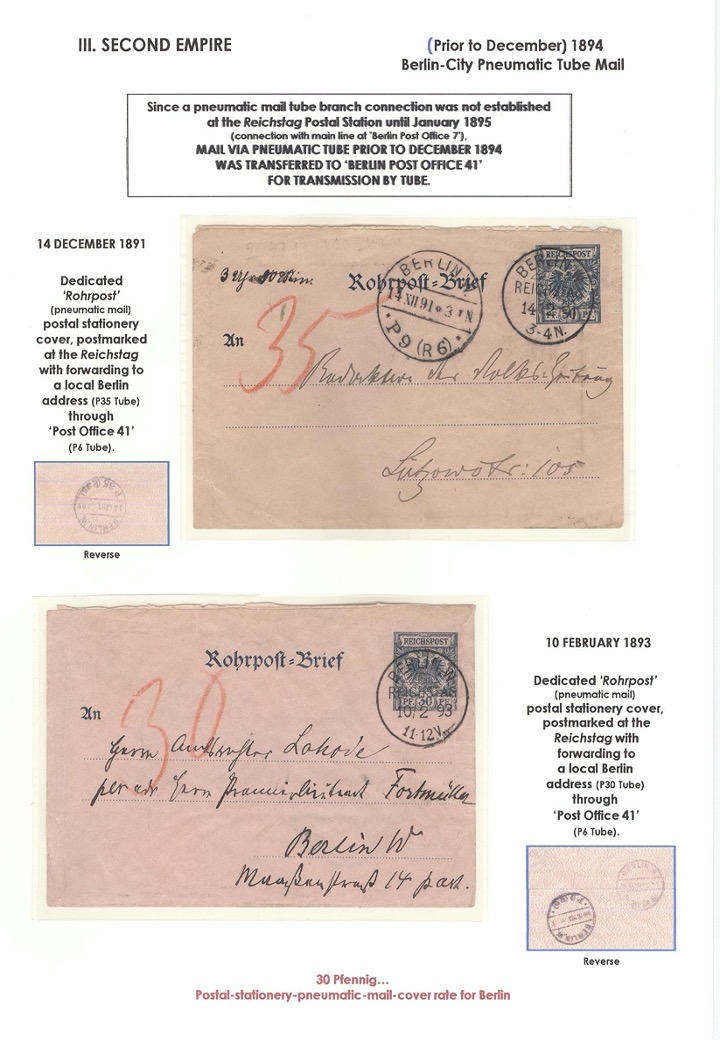 III. SECOND EMPIRE
(Prior to December) 1894
Berlin-City Pneumatic Tube Mail
Since a pneumatic mail tube branch connection was not established
at the Reichstag Postal Station until January 1895
(connection with main line at 'Berlin Post Office 7'),
MAIL VIA PNEUMATIC TUBE PRIOR TO DECEMBER 1894
WAS TRANSFERRED TO 'BERLIN POST OFFICE 41'
FOR TRANSMISSION BY TUBE.
14 DECEMBER 1891
Dedicated
'Rohrpost'
(pneumatic mail)
postal stationery
cover, postmarked
at the Reichstag
with forwarding to
a local Berlin
address (P35 Tube)
through
'Post Office 41'
(P6 Tube).
Reverse
3 Uhr
Rohrpost-Brief
REICHSPOST
BERLIN
14 XII 91 3 N
P9 (R6)
BERLIN
3-4N.
35
An
Redaktion der Volks-Zeitung
Lützowstr: 105
Rohrpost-Brief
REICHSPOST
BERLIN.W.
REICHSTAG
10/2 93
11-12V.
30
An
Herrn Amtsrichter
per adr Herrn Premierlieutenant Fortmüller
Berlin W
Maaßenstraß 14 part.
10 FEBRUARY 1893
Dedicated 'Rohrpost'
(pneumatic mail)
postal stationery cover,
postmarked at the
Reichstag with
forwarding to
a local Berlin
address (P30 Tube)
through
'Post Office 41'
(P6 Tube).
Reverse
30 Pfennig...
Postal-stationery-pneumatic-mail-cover rate for Berlin